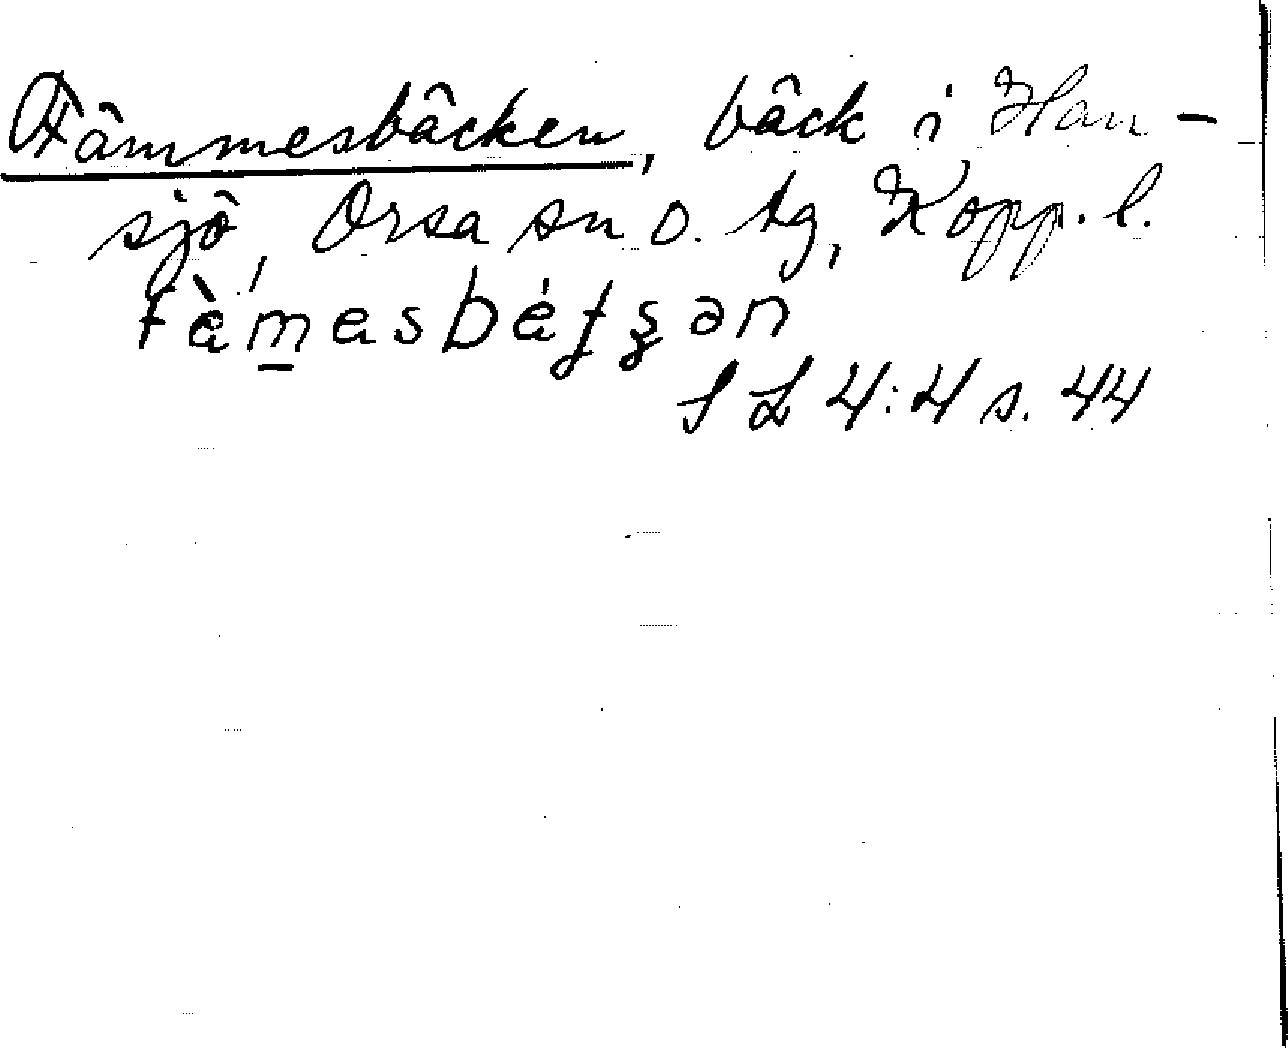 Fämmesbäcken, bäck i Han-
sjö, Orsa sn o. tg, Kopp. l.
SL 4:4 s. 44